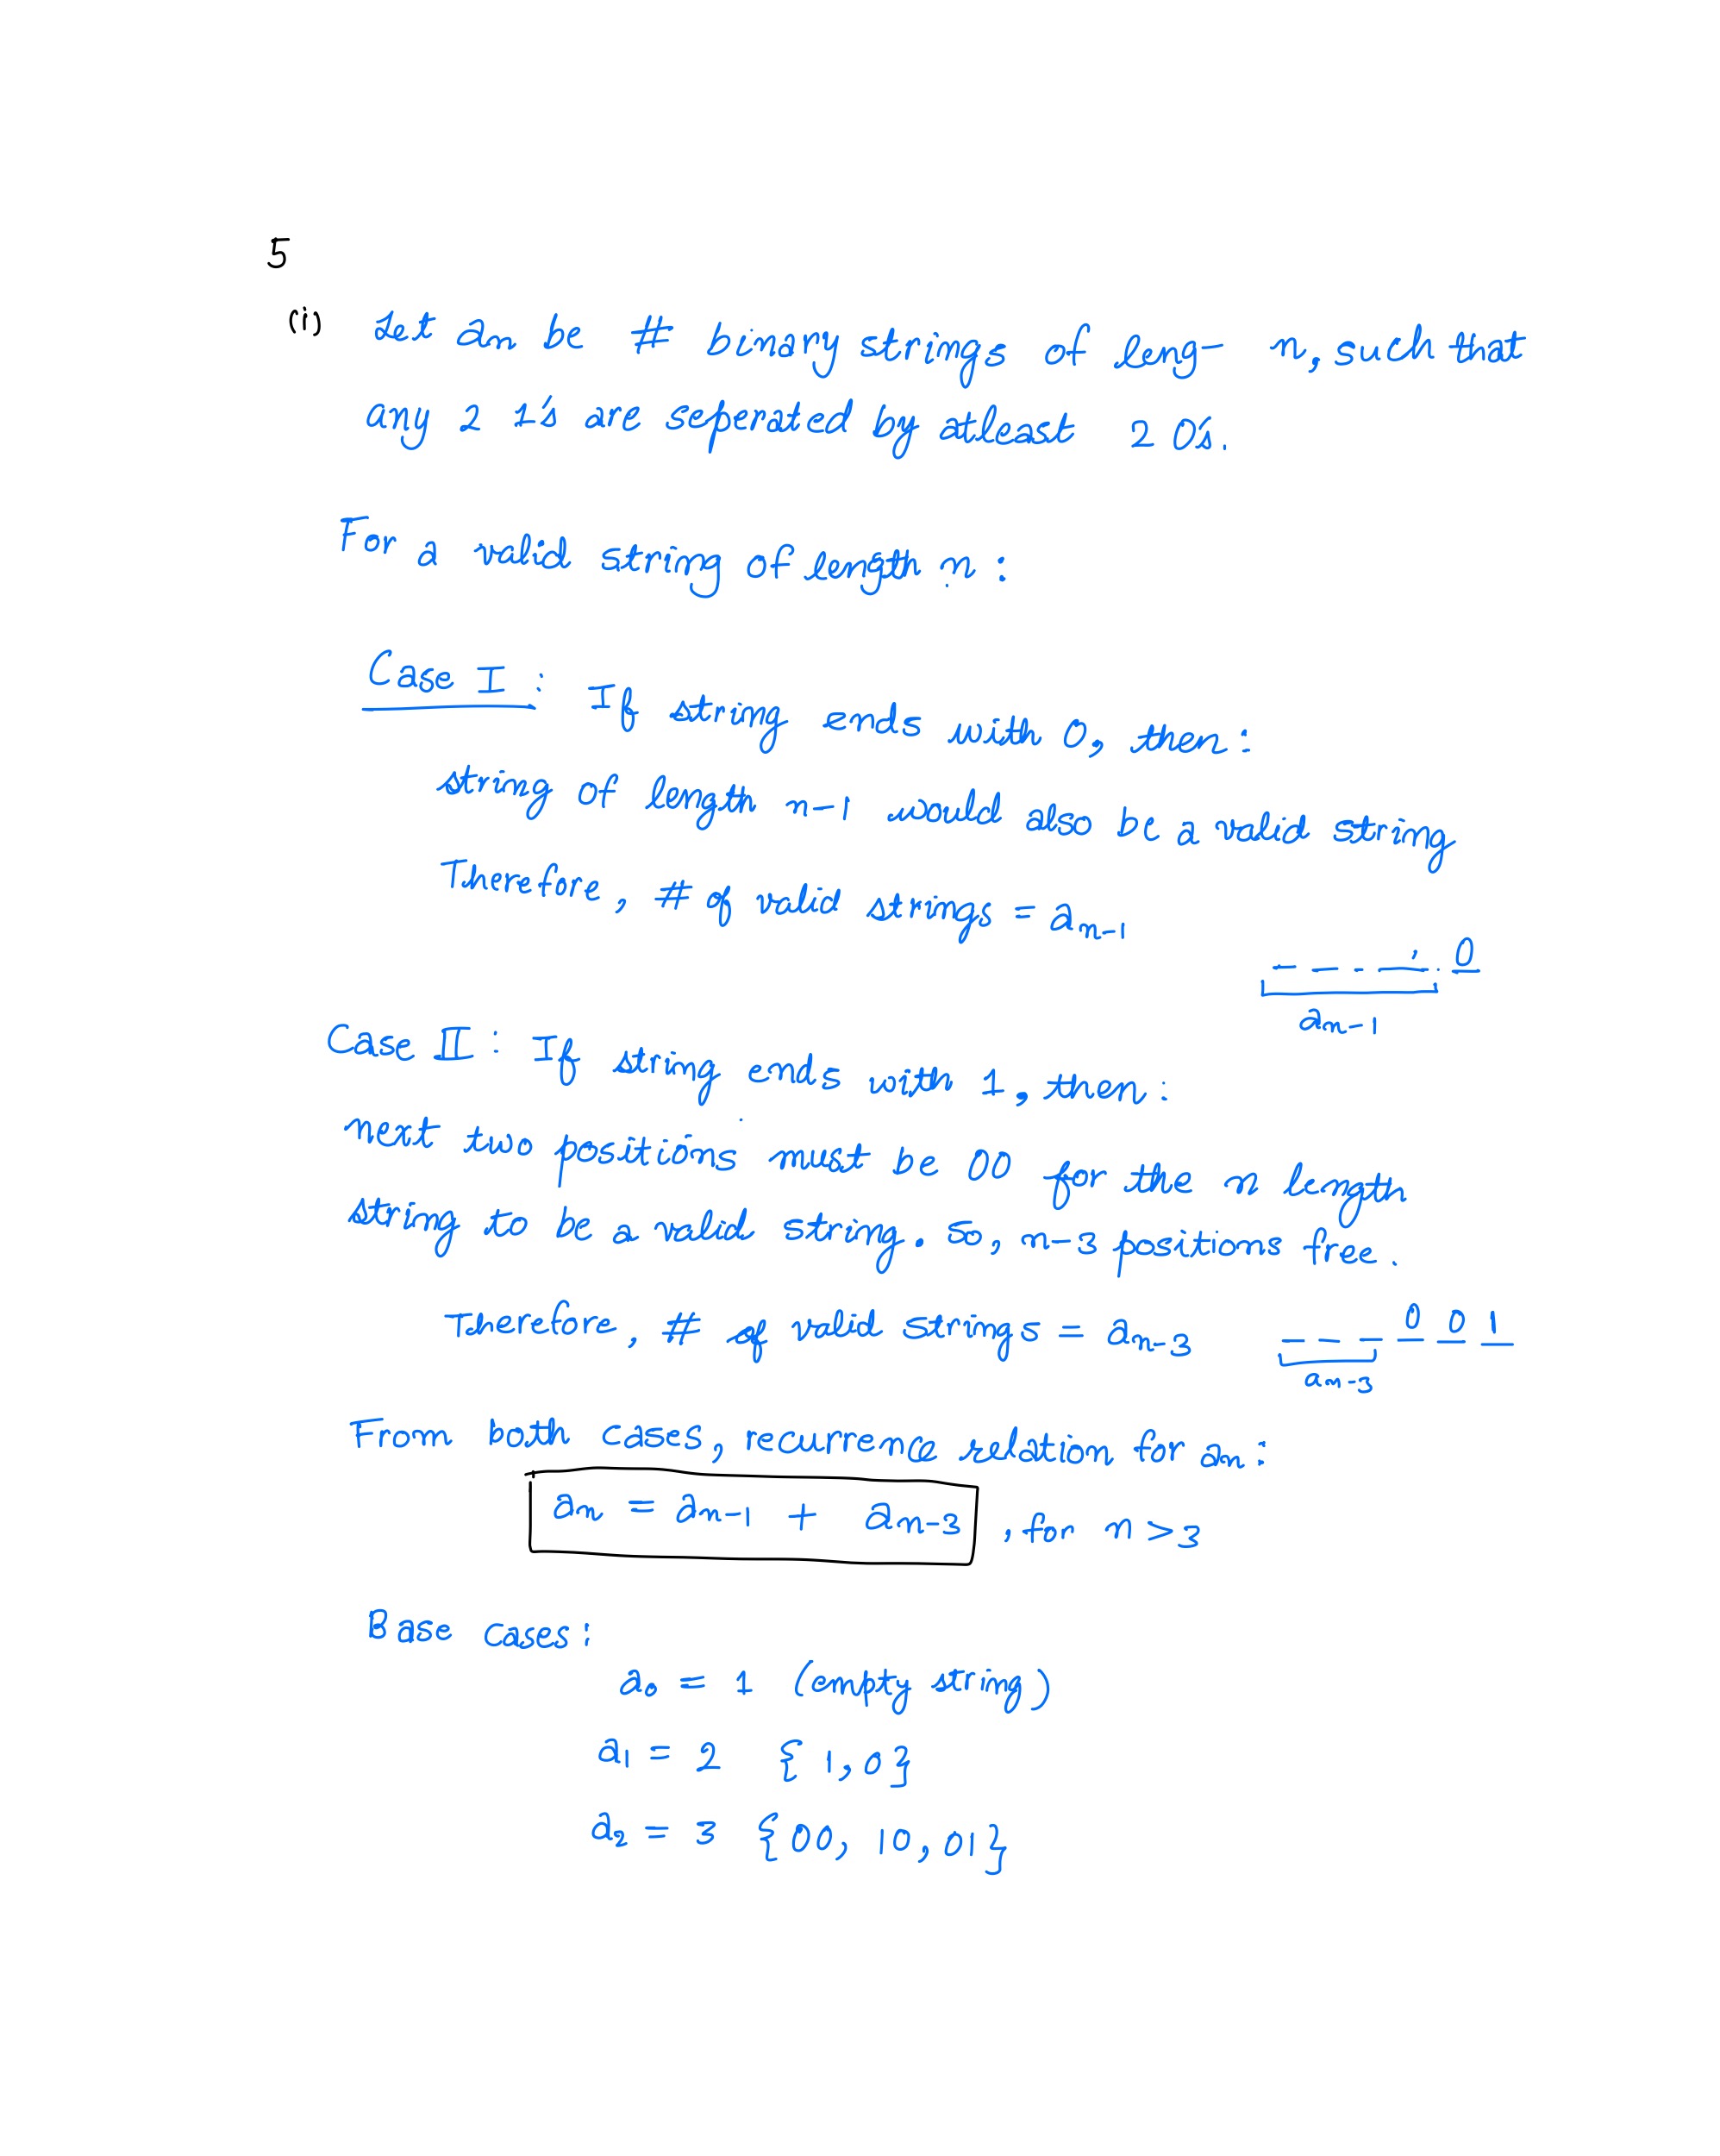 5
(i) Let an be # binary strings of leng- n, such that
any 2 1's are seperated by atleast 2 0's.
For a valid string of length n :
Case I : If string ends with 0, then :
string of length n-1 would also be a valid string
Therefore, # of valid strings = an-1
_ _ _ _ 0
an-1
Case II : If string ends with 1, then :
next two positions must be 00 for the n length
string to be a valid string. So, n-3 positions free.
Therefore, # of valid strings = an-3 _ _ _ 0 0 1
an-3
From both cases, recurrence relation for an :
an = an-1 + an-3 , for n > 3
Base cases :
a0 = 1 (empty string)
a1 = 2 { 1, 0 }
a2 = 3 { 00, 10, 01 }